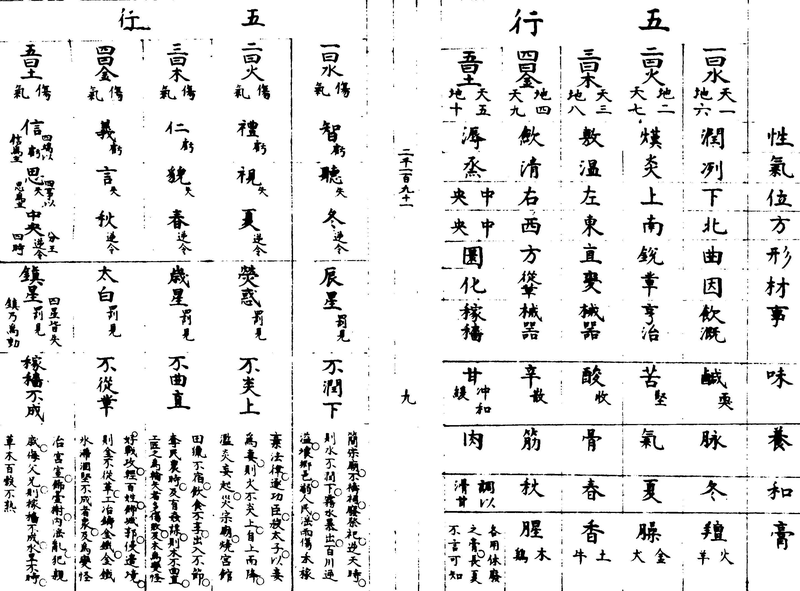 五行
性氣位方形材事味養和膏
一曰水 天一地六 潤 冽 下 北 曲 因 飲溉 鹹耎 脉 冬 羶 火羊
二曰火 地二天七 熯 炎 上 南 銳 章 亨冶 苦堅 氣 夏 臊 金犬
三曰木 天三地八 敷 溫 左 東 直 變 械器 酸收 骨 春 香 土牛
四曰金 地四天九 斂 清 右 西 方 從革 械器 辛散 筋 秋 腥 木鷄
五曰土 天五地十 溽 蒸 中央 中央 圜 化 稼穡 甘 冲和緩 肉 調以滑甘 各用休廢之膏長夏不言可知
二千二百九十一
九
五行
一曰水 傷氣 智虧 聽失 冬逆令 辰星罰見 不潤下
簡宗廟不禱祠廢祭祀逆天時
則水不潤下霧水暴出百川逆
溢壞鄉邑溺人民淫雨傷禾稼
二曰火 傷氣 禮虧 視失 夏逆令 熒惑罰見 不炎上
棄法律逐功臣殺太子以妾
為妻則火不炎上自上而降
濫炎妄起災宗廟燒宮館
三曰木 傷氣 仁虧 貌失 春逆令 歲星罰見 不曲直
田獵不宿飲食不享出入不節
奪民農時及有姦謀則木不曲直
工匠之為輪矢者多傷敗及木為變怪
四曰金 傷氣 義虧 言失 秋逆令 太白罰見 不從革
好戰攻輕百姓飾城郭侵邊境
則金不從革冶鑄金鐵金鐵
水滯涸堅不成者衆及為變怪
五曰土 傷氣 信虧 四端以信為主 思失 四事以思為主 中央逆令 分王四時 鎮星罰見 四星皆失鎮乃為動 稼穡不成
治宮室飾臺榭內淫亂犯親
戚侮父兄則稼穡不成水旱不時
草木百穀不熟